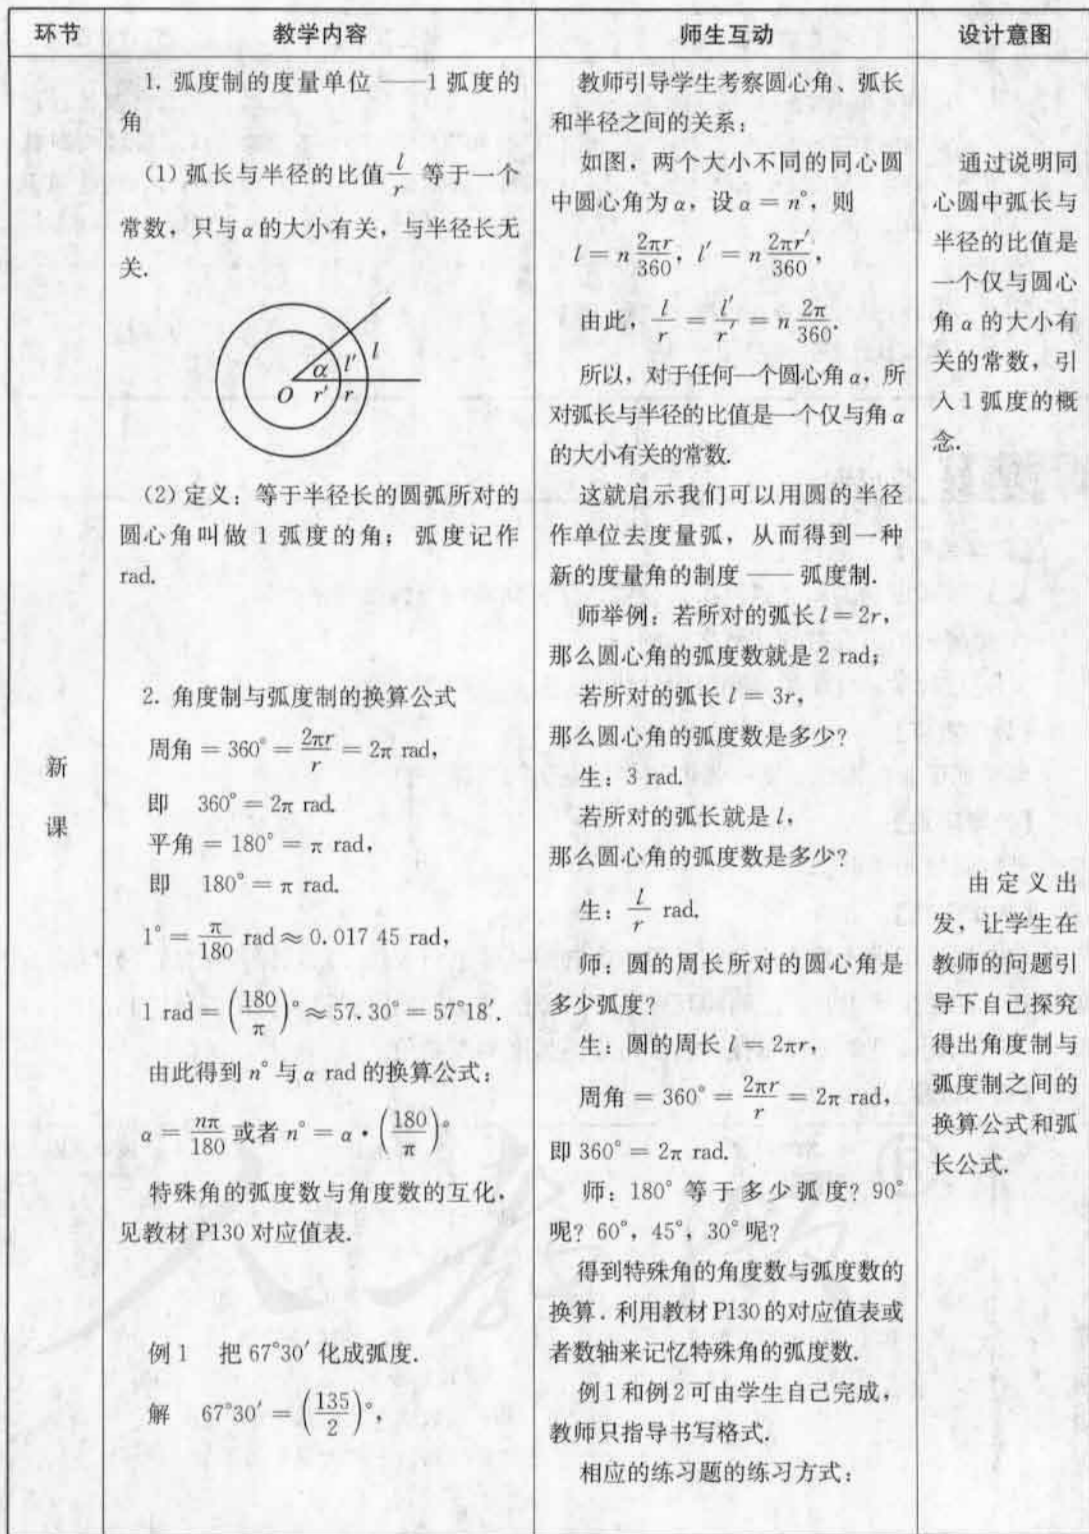 环节 教学内容 师生互动 设计意图
新
课
1. 弧度制的度量单位——1 弧度的
角
(1) 弧长与半径的比值 $\frac{l}{r}$ 等于一个
常数，只与 α 的大小有关，与半径长无
关.
α l′ l
O r′ r
(2) 定义：等于半径长的圆弧所对的
圆心角叫做 1 弧度的角；弧度记作
rad.
2. 角度制与弧度制的换算公式
周角 = 360° = $\frac{2πr}{r}$ = 2π rad，
即 360° = 2π rad.
平角 = 180° = π rad，
即 180° = π rad.
1° = $\frac{π}{180}$ rad ≈ 0.017 45 rad，
1 rad = $\left(\frac{180}{π}\right)$° ≈ 57.30° = 57°18′.
由此得到 n° 与 α rad 的换算公式：
α = $\frac{nπ}{180}$ 或者 n° = α · $\left(\frac{180}{π}\right)$°
特殊角的弧度数与角度数的互化，
见教材 P130 对应值表.
例 1 把 67°30′ 化成弧度.
解 67°30′ = $\left(\frac{135}{2}\right)$°，
教师引导学生考察圆心角、弧长
和半径之间的关系：
如图，两个大小不同的同心圆
中圆心角为 α，设 α = n°，则
l = n$\frac{2πr}{360}$，l′ = n$\frac{2πr′}{360}$，
由此，$\frac{l}{r}$ = $\frac{l′}{r′}$ = n$\frac{2π}{360}$.
所以，对于任何一个圆心角 α，所
对弧长与半径的比值是一个仅与角 α
的大小有关的常数.
这就启示我们可以用圆的半径
作单位去度量弧，从而得到一种
新的度量角的制度——弧度制.
师举例：若所对的弧长 l = 2r，
那么圆心角的弧度数就是 2 rad；
若所对的弧长 l = 3r，
那么圆心角的弧度数是多少？
生：3 rad.
若所对的弧长就是 l，
那么圆心角的弧度数是多少？
生：$\frac{l}{r}$ rad.
师：圆的周长所对的圆心角是
多少弧度？
生：圆的周长 l = 2πr，
周角 = 360° = $\frac{2πr}{r}$ = 2π rad，
即 360° = 2π rad.
师：180° 等于多少弧度？90°
呢？60°，45°，30° 呢？
得到特殊角的角度数与弧度数的
换算．利用教材 P130 的对应值表或
者数轴来记忆特殊角的弧度数.
例 1 和例 2 可由学生自己完成，
教师只指导书写格式.
相应的练习题的练习方式：
通过说明同
心圆中弧长与
半径的比值是
一个仅与圆心
角 α 的大小有
关的常数，引
入 1 弧度的概
念.
由定义出
发，让学生在
教师的问题引
导下自己探究
得出角度制与
弧度制之间的
换算公式和弧
长公式.